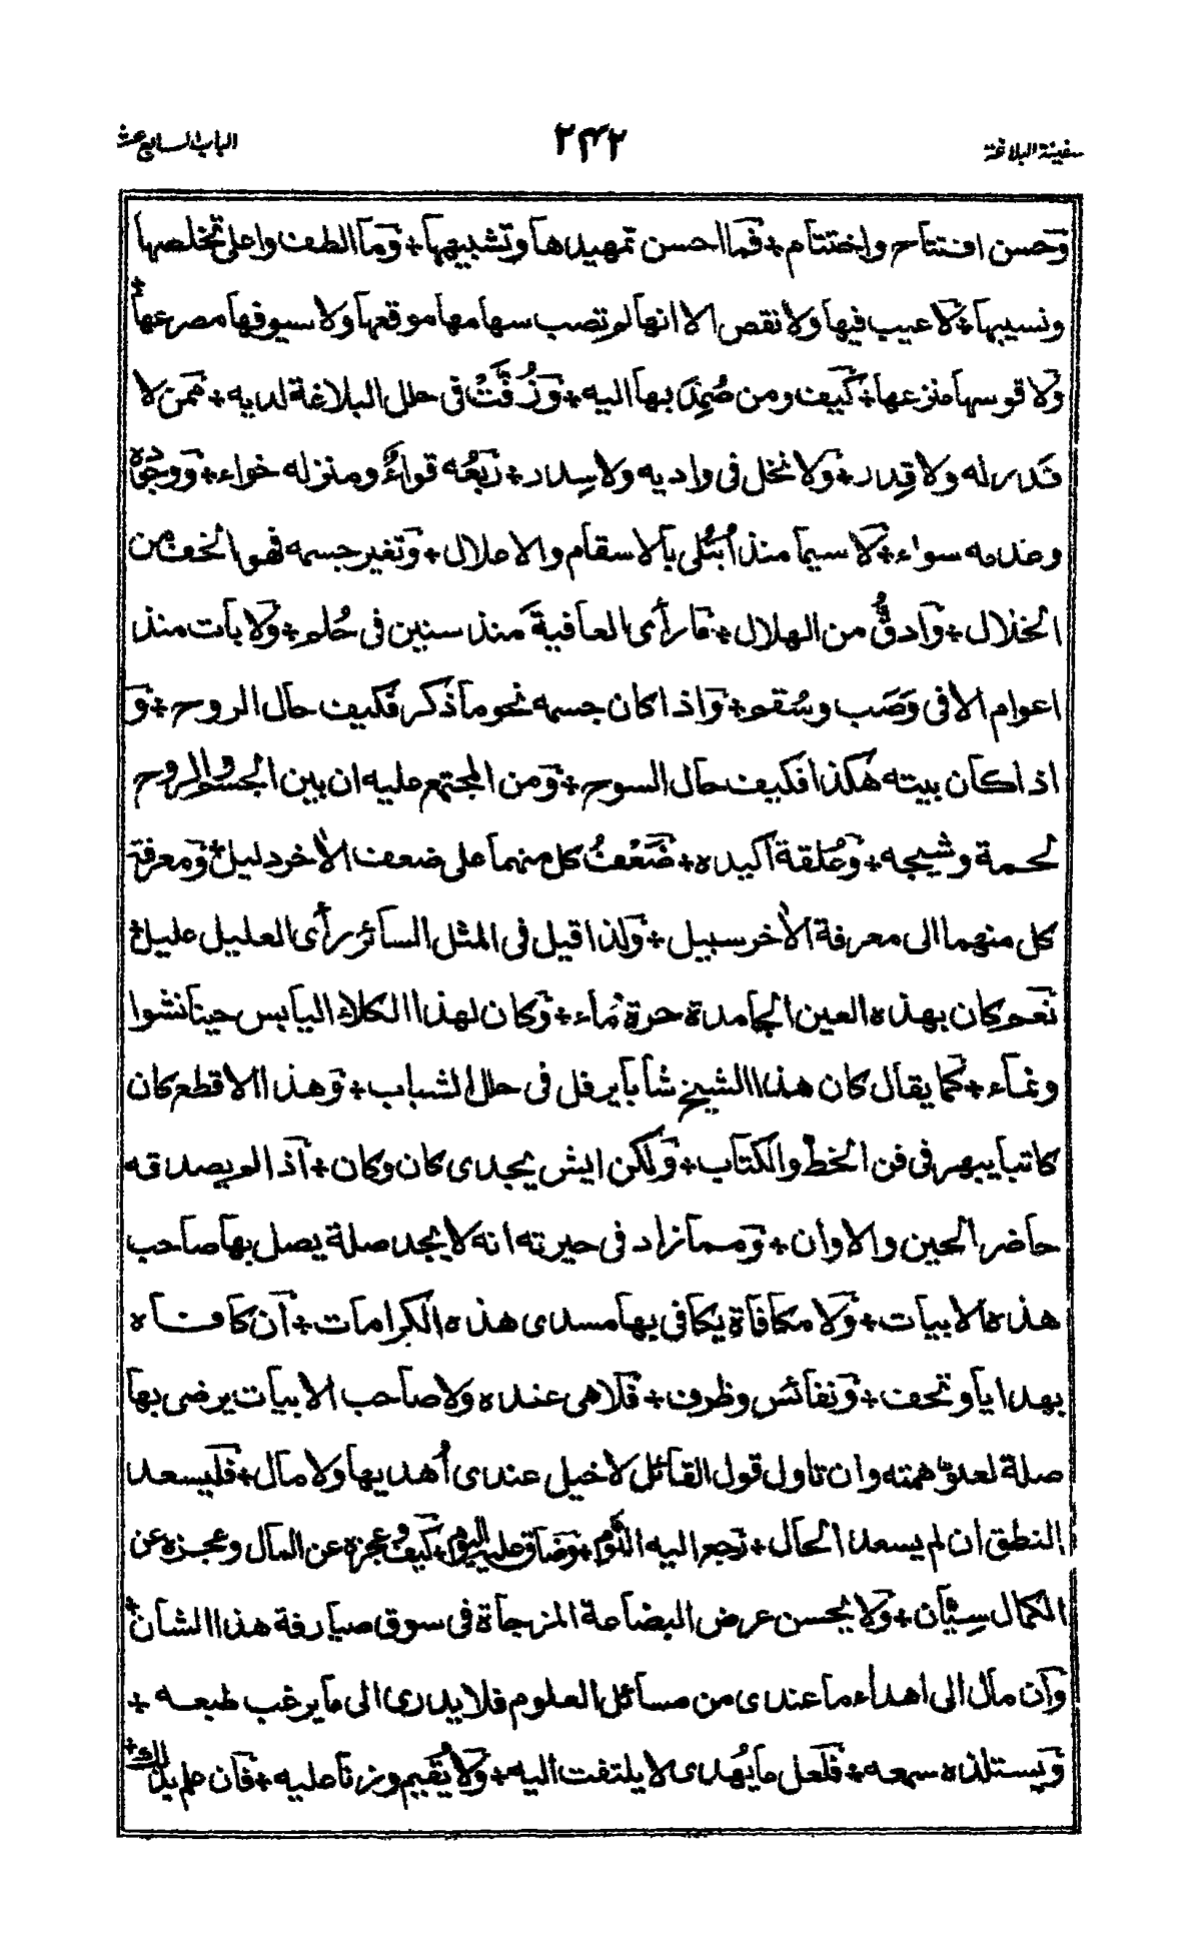 سفينة البلاغة
٢٤٢
الباب السابع عشر
وحسن افتتاح واختتام + فما احسن تمهيدها وتشبيبها + وما الطف واعلى تخلصها
ونسيبها + لا عيب فيها ولا نقص الا انها لم تصب سهامها موقعها ولا سيوفها مصرعها +
ولا قوسها منزعها + كيف ومن صُمِدَ بها اليه + وزُفَّتْ في حلل البلاغة لديه + ممن لا
قدر له ولا قِدر + ولا نخل في واديه ولا سِدر + رَبْعُه قواءٌ ومنزله خواء + ووجوده
وعدمه سواء + لا سيما منذ اُبتُلي بالاسقام والاعلال + وتغير جسمه فهو اخف من
الخلال + وادقُّ من الهلال + ما رأى العافيةَ منذ سنين في حُلم + ولا بات منذ
اعوام الا في وَصَب وسُقم + واذا كان جسمه نحو ما ذكر فكيف حال الروح + و
اذا كان بيته هكذا فكيف حال السوح + ومن المجتمع عليه ان بين الجسم والروح
لحمة وشيجه + وعُلقة اكيده + ضَعْفُ كل منهما على ضعف الاٰخر دليل + ومعرفة
كل منهما الى معرفة الاٰخر سبيل + ولذا قيل في المثل السائر رأى العليل عليل +
نعم كان بهذه العين الجامدة مرة مُاء + وكان لهذا الكلاء اليابس حينا نشوا
ونماء + كما يقال كان هذا الشيخ شابا يرفل في حلل الشباب + وهذا الاقطع كان
كاتبا يبهر في فن الخط والكتاب + ولكن ايش يجدى كان وكان + اذا لم يصدقه
حاضر الحين والاوان + ومما زاد في حيرته انه لا يجد صلة يصل بها صاحب
هذه الابيات + ولا مكافاة يكافي بها مسدى هذه الكرامات + ان كافاه
بهدايا وتحف + ونفائس وظرف + فلا هى عنده ولا صاحب الابيات يرضى بها
صلة لعلوّ همته وان تاول قول القائل لا خيل عندى اُهديها ولا مال + فليسعد
النطق ان لم يسعد الحال + رجع اليه اللوم + وضاق عليه اليوم + كيف وعجزه عن المال وعجزه عن
الكمال سِيّان + ولا يحسن عرض البضاعة المزجاة في سوق صيارفة هذا الشان +
وان مال الى اهداء ما عندى من مسائل العلوم فلا يدرى الى ما يرغب طبعه +
ويستلذه سمعه + فلعل ما يُهدى لا يلتفت اليه + ولا يُقيم وزنا عليه + فان علم بذلك +